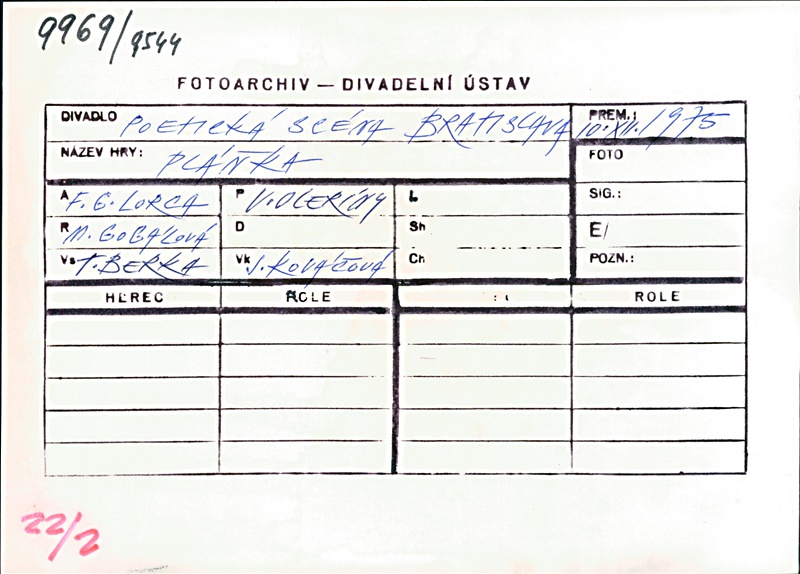 9969/9544
FOTOARCHIV — DIVADELNÍ ÚSTAV
DIVADLO POETICKÁ SCÉNA BRATISLAVA PREM.: 10.XII.1975
NÁZEV HRY: PLÁŇKA FOTO
A F. G. LORCA P V. OLERÍNY L SIG.:
R M. GOGÁĽOVÁ D Sh E/
Vs T. BERKA Vk J. KOVÁČOVÁ Ch POZN.:
HEREC ROLE ROLE
22/2